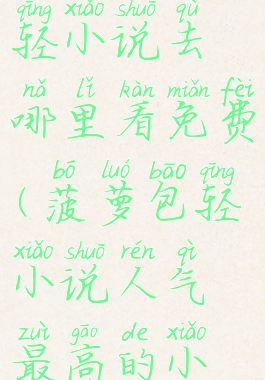 qīng xiǎo shuō qù
轻小说去
nǎ lǐ kàn miǎn fèi
哪里看免费
bō luó bāo qīng
(菠萝包轻
xiǎo shuō rén qì
小说人气
zuì gāo de xiǎo
最高的小